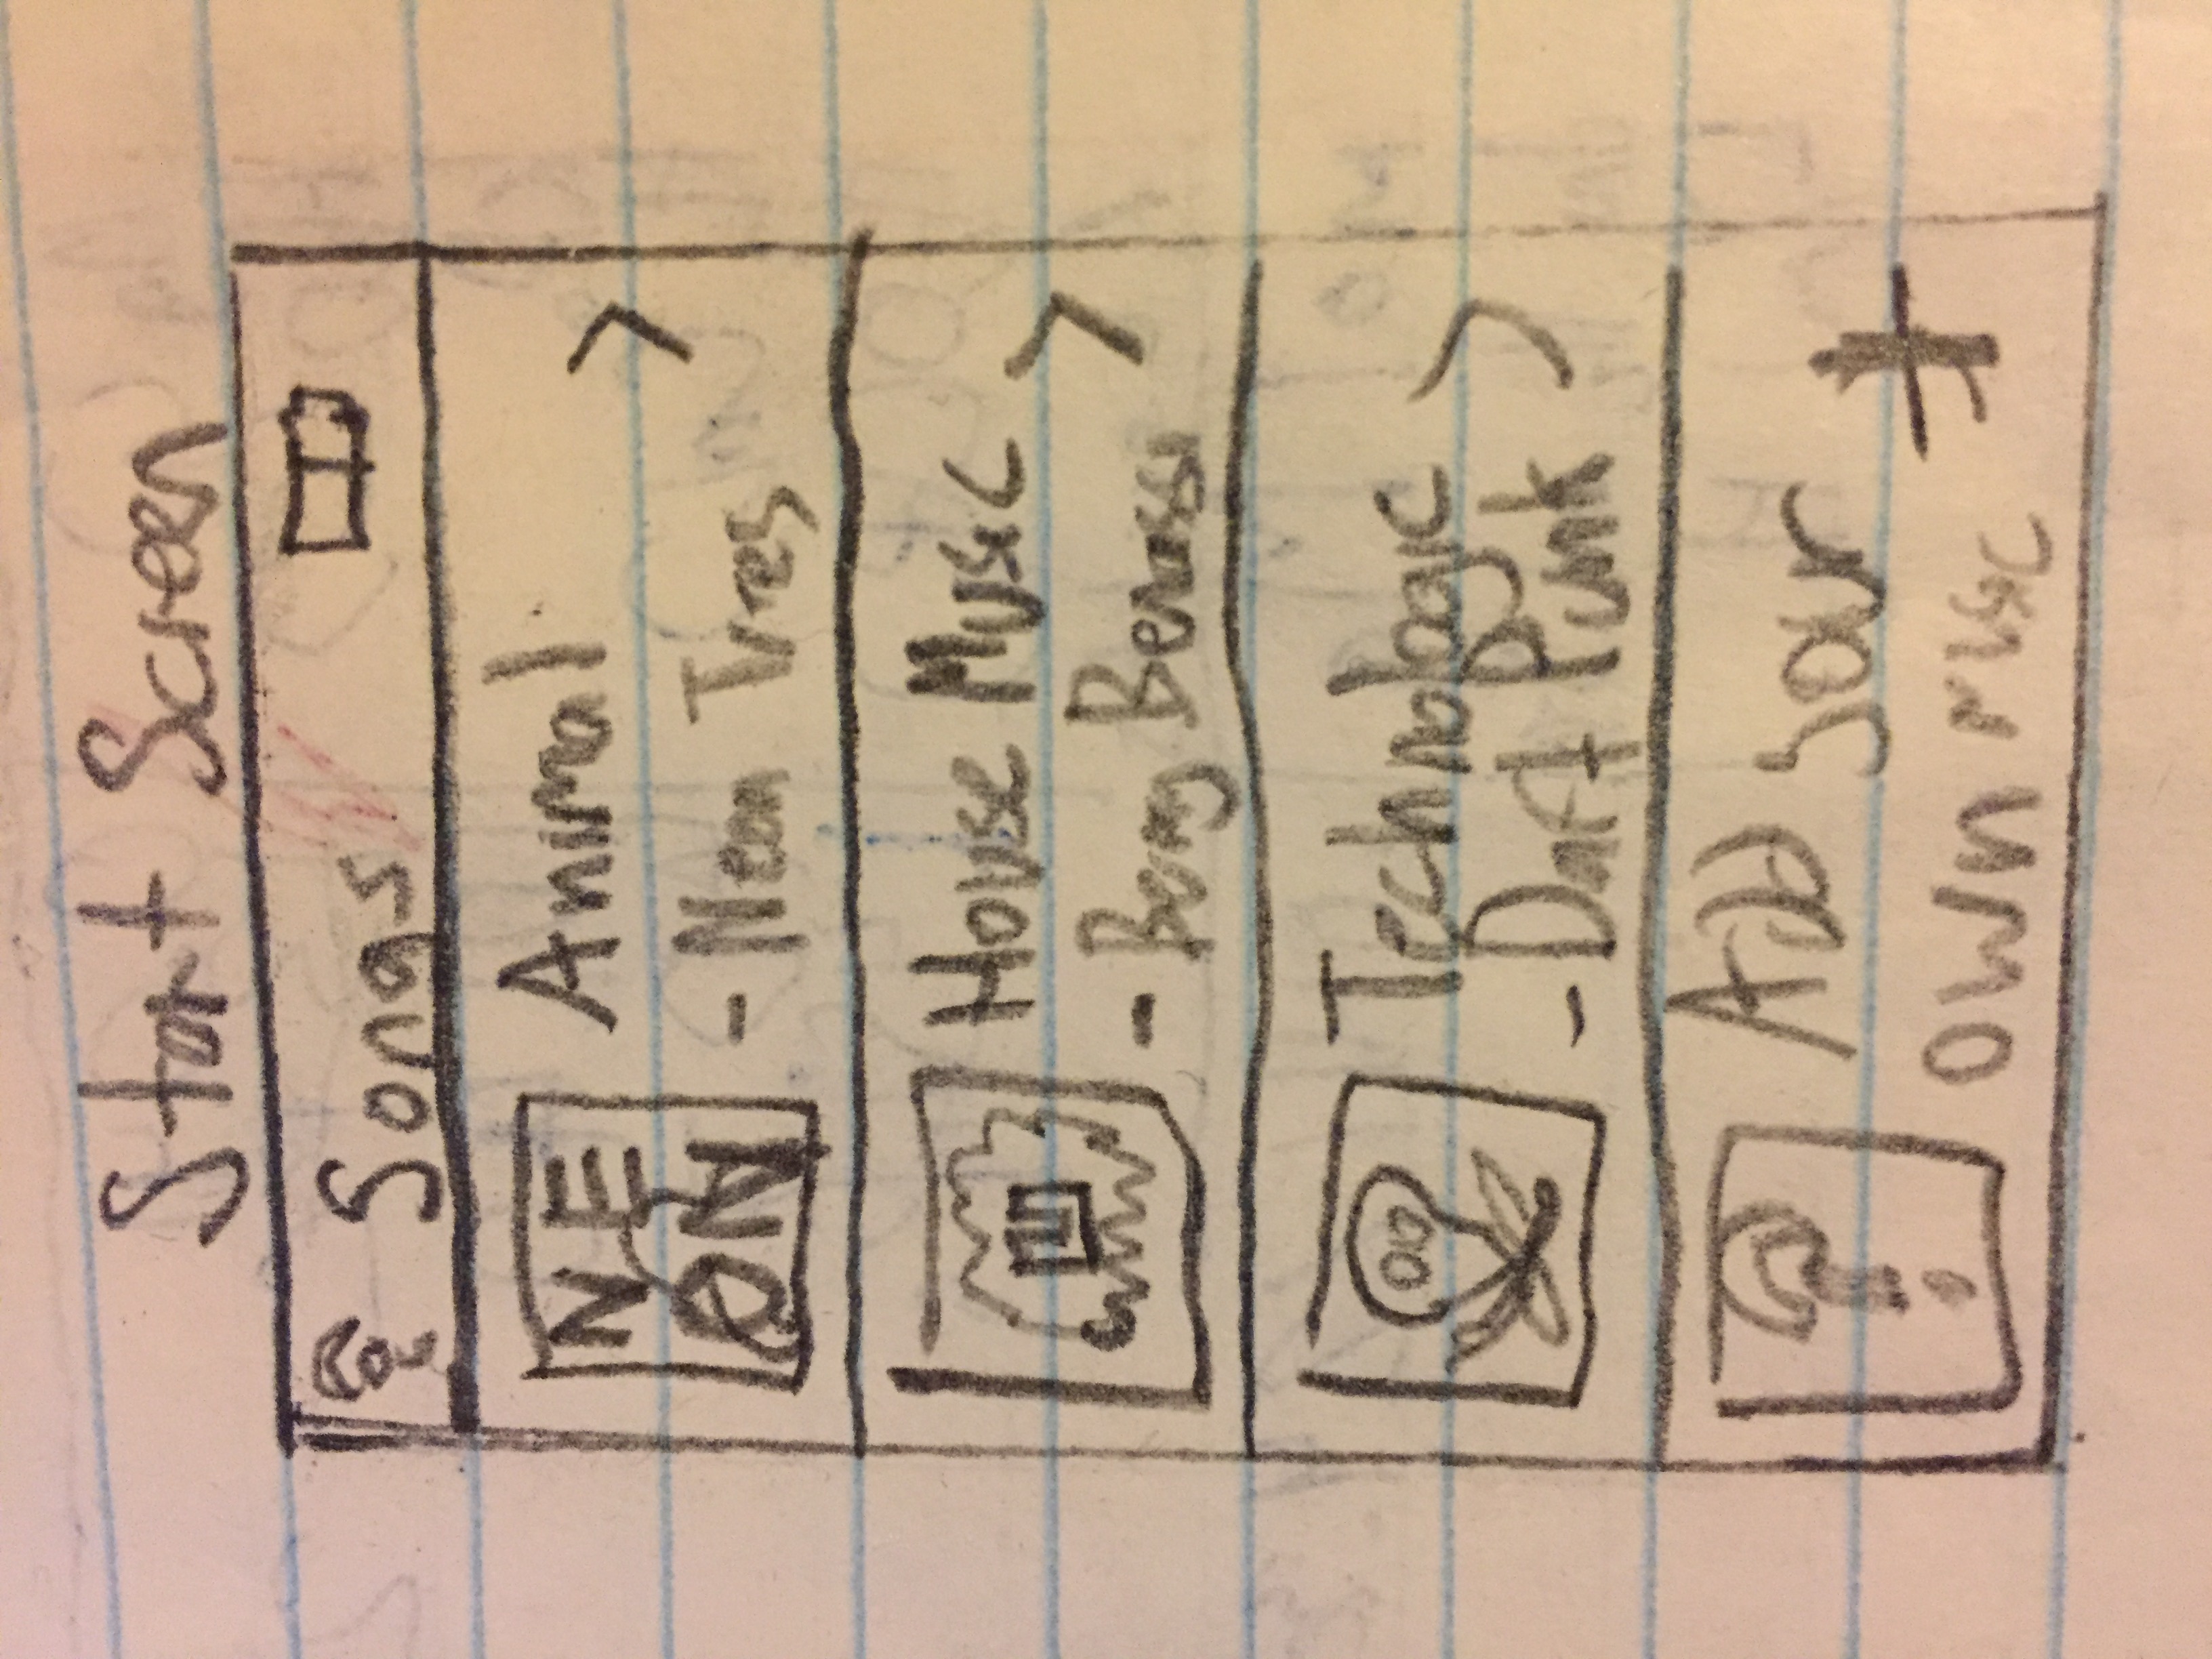 Start Screen
Songs
NE
ON
Animal
- Neon Tres
House Music
- Beny Benassi
Technologic
- Daft Punk
Add your
own music